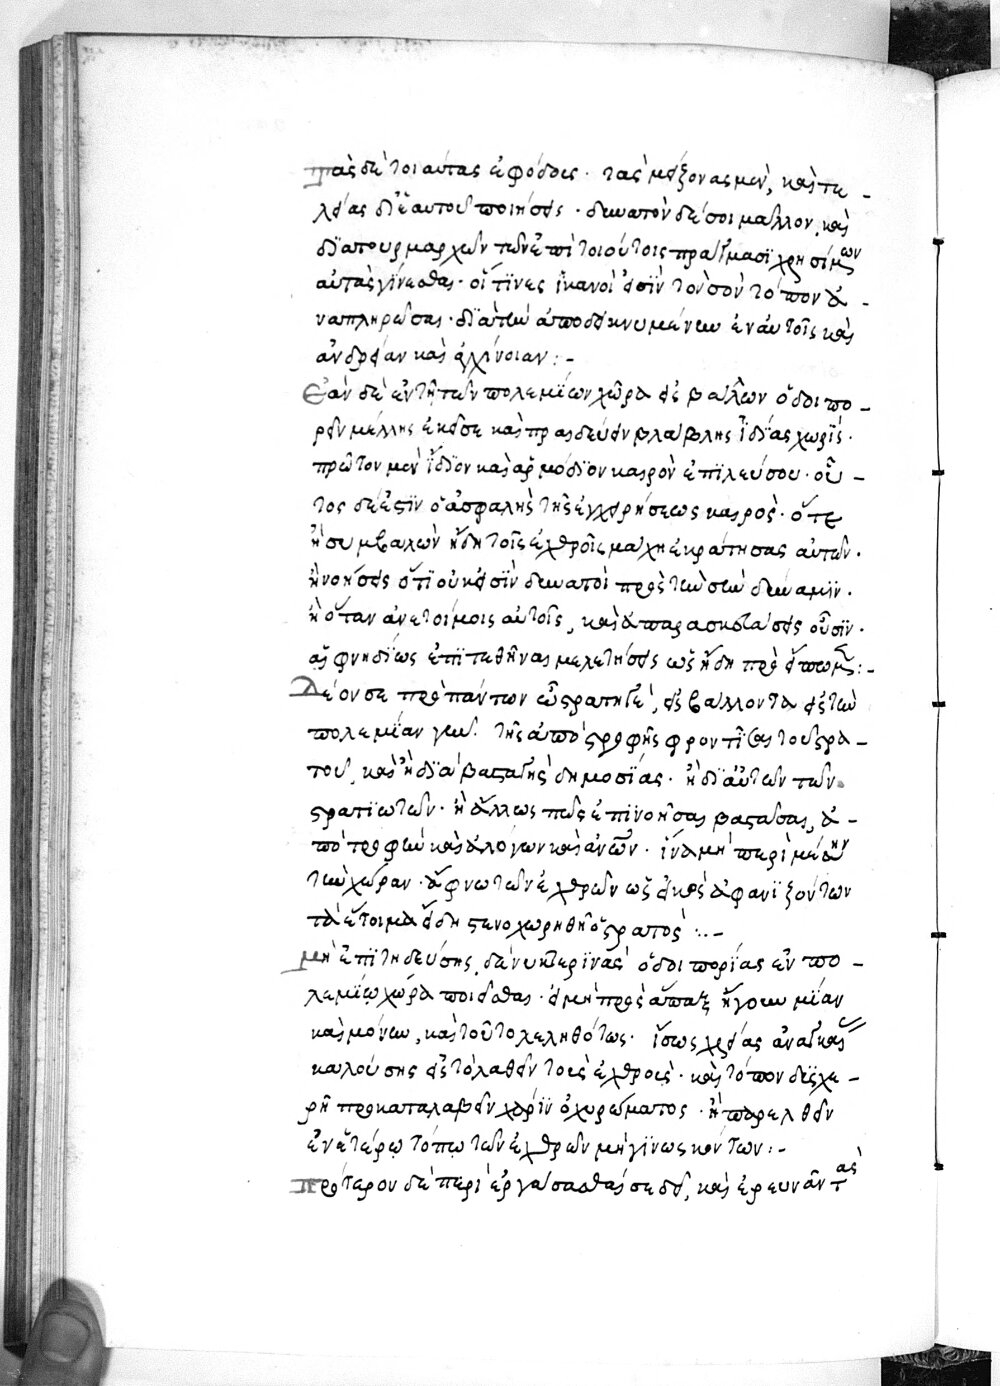 Τὰς δὲ τοιαύτας ἐφόδους· τὰς μείζονας μὲν, καὶ τε-
λείας δι' ἑαυτοῦ ποιήσεις· δυνατὸν δέ σοι μᾶλλον, καὶ
διὰ τουρμαρχῶν τῶν ἐπὶ τοιούτοις πράγμασι χρησίμων
αὐτὰς γίνεσθαι· οἵ τινες ἱκανοί εἰσιν τὸν σὸν τόπον ἀ-
ναπληρῶσαι· διὰ τὴν ἀποδεικνυμένην ἐν αὐτοῖς καὶ
ἀνδρείαν καὶ ἀγχίνοιαν:-
Ἐὰν δὲ ἐν τῇ τῶν πολεμίων χώρα εἰσβαλὼν ὁδοιπο-
ρεῖν μέλλης ἐκεῖσε καὶ πραιδεύειν βλάβης ἰδίας χωρίς·
πρῶτον μὲν ἴδιον καὶ ἁρμόδιον καιρὸν ἐπίλευσου· οὗ-
τος δέ ἐστιν ὁ ἀσφαλὴς τῆς ἐγχειρήσεως καιρός· ὅτε
ἢ συμβαλὼν ἤδη τοῖς ἐχθροῖς μάχη ἐκράτησας αὐτῶν·
ἢ νοήσεις ὅτι οὐκ εἰσὶν δυνατοὶ πρὸς τὴν σὴν δύναμιν·
ἢ ὅταν ἀνετοίμοις αὐτοῖς, καὶ ἀπαρασκευάστοις οὖσιν·
αἰφνηδίως ἐπιτεθῆναι μελετήσεις ὡς ἤδη προείπωμεν:-
Δέον σε πρὸ πάντων ὦ στρατηγέ, εἰσβάλλοντα εἰς τὴν
πολεμίαν γῆν. τῆς ἀποστροφῆς φροντίσαι τοῦ στρα-
τοῦ, καὶ ἢ διὰ βασταγῆς δημοσίας· ἢ δι' αὐτῶν τῶν
στρατιωτῶν· ἢ ἄλλως πῶς ἐπινοῆσαι βαστάσαι, ἀ-
ποτροφὴν καὶ ἀλόγων καὶ ἀνων· ἵνα μὴ περιμένων
τὴν χώραν· ἄφνω τῶν ἐχθρῶν ὡς εἰκὸς ἀφανιζόντων
τὰ ἕτοιμα εἴδη στενοχωρηθῆ ὁ στρατός :.-
μὴ ἐπιτηδεύσης δὲ νυκτερινὰς ὁδοιπορίας ἐν πο-
λεμίῳ χώρα ποιεῖσθαι· εἰ μὴ πρὸς ἅπαξ ἤγουν μίαν
καὶ μόνην, καὶ τοῦτο λεληθότως· ἴσως χρείας ἀναγκαίας
καλούσης εἰς τὸ λαθεῖν τοὺς ἐχθρούς· καὶ τόπον δυσχε-
ρῆ προκαταλαβεῖν χάριν ὀχυρώματος· ἢ παρελθεῖν
ἐν ἑτέρῳ τόπῳ τῶν ἐχθρῶν μὴ γινωσκόντων:-
πρότερον δὲ περιεργάσασθαί σε δεῖ, καὶ ἐρευνᾶν τὰς